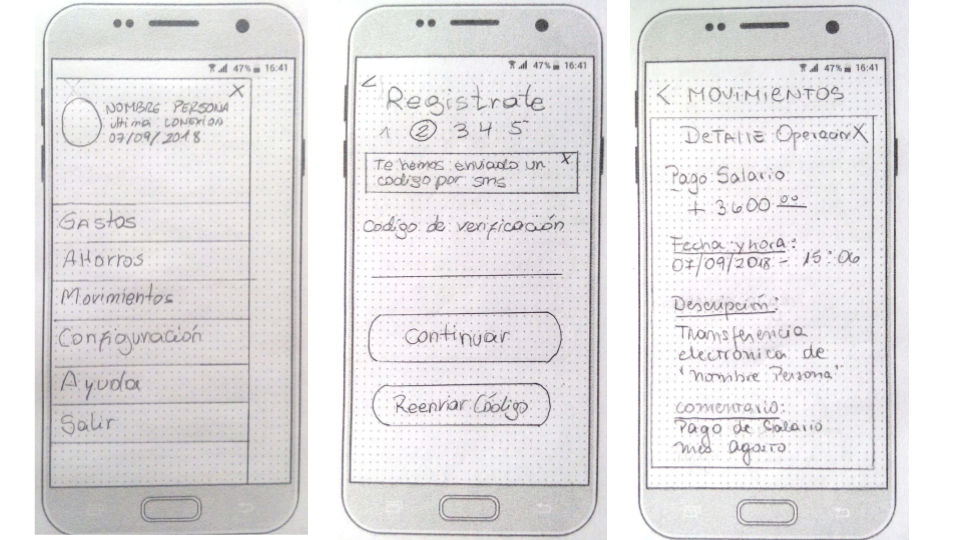 47% 16:41
X
NOMBRE PERSONA
última CONEXION
07/09/2018
Gastos
AHorros
Movimientos
Configuración
Ayuda
Salir
47% 16:41
<
Registrate
1 2 3 4 5
Te hemos enviado un X
codigo por sms
Codigo de verificación
Continuar
Reenviar Código
47% 16:41
< MOVIMIENTOS
DETALLE Operación X
Pago Salario
+ 3600 00
Fecha y hora:
07/09/2018 - 15:06
Descripción:
Transferencia
electrónica de
"nombre Persona"
comentario:
Pago de Salario
mes agosto